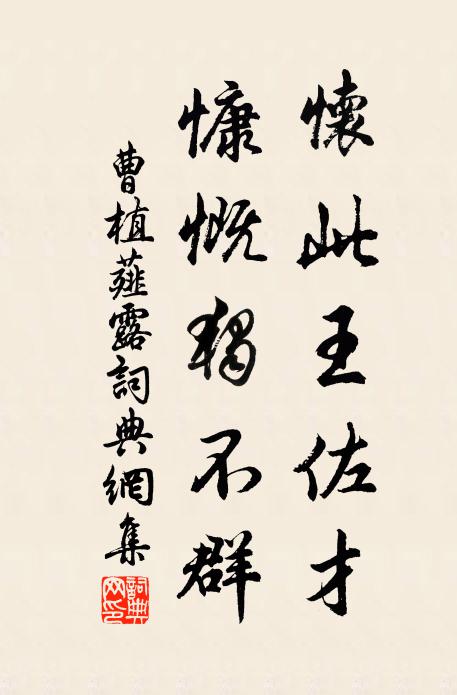 懷此王佐才
慷慨獨不群
曹植薤露詞典網集
詞典網印